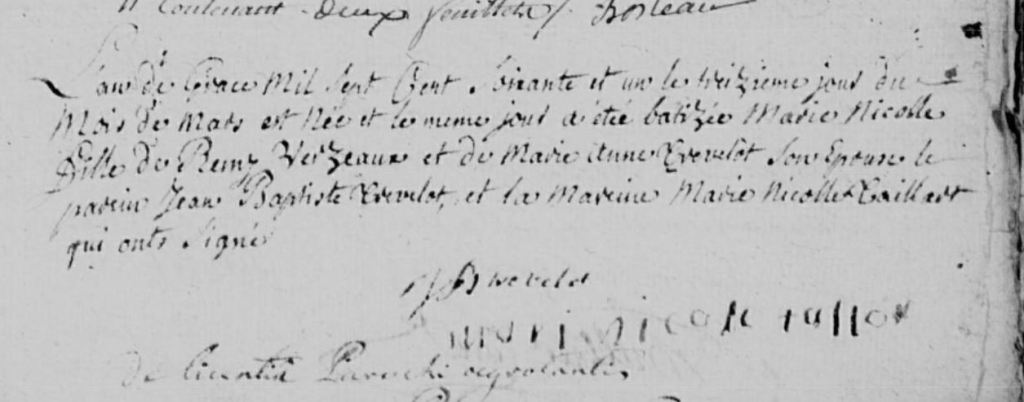 contenant deux feuillets
L'an de Grace Mil Sept Cent Soixante et un le treizieme jour du
Mois de Mars est Née et le meme jour a étée batizée Marie Nicolle
fille de Remy Verzeaux et de Marie Anne Trevelot Son Epouse le
parein Jean Baptiste Trevelot, et la Mareine Marie Nicolle Taillart
qui onts Signé
JB trevelot
mari nicole
de licentia Parochi aegrotantis